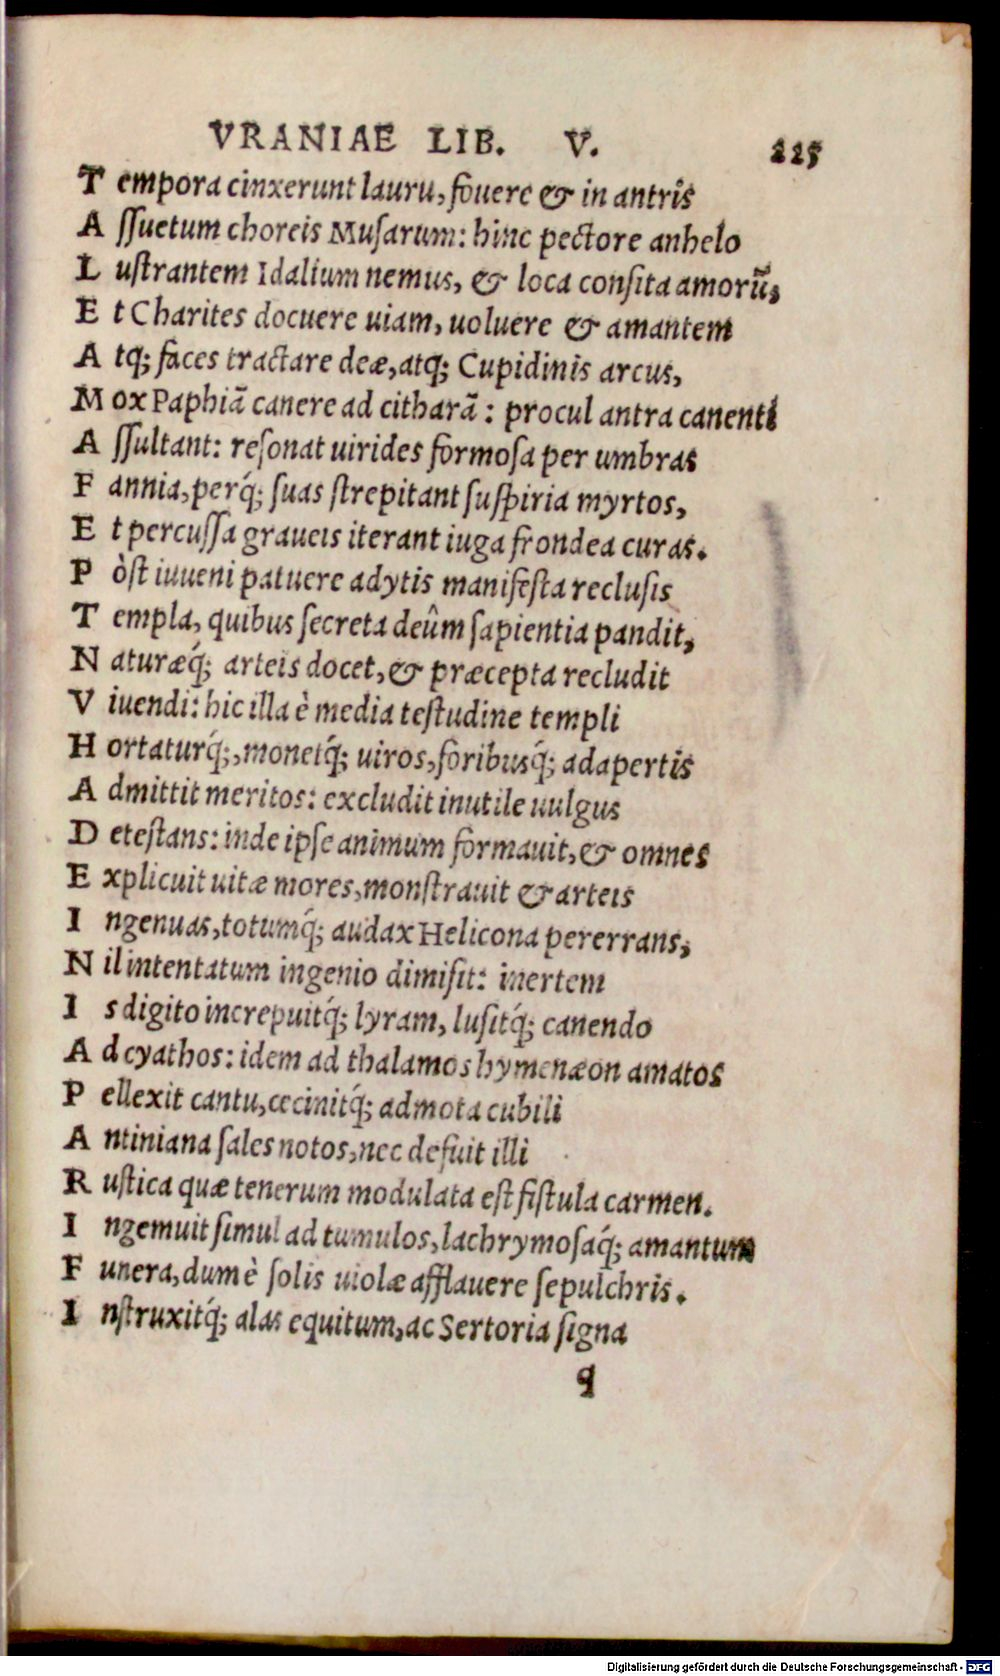 VRANIAE LIB. V. 225
T empora cinxerunt lauru, fouere & in antris
A ſſuetum choreis Muſarum: hinc pectore anhelo
L uſtrantem Idalium nemus, & loca conſita amorũ,
E t Charites docuere uiam, uoluere & amantem
A tq; faces tractare deæ, atq; Cupidinis arcus,
M ox Paphiã canere ad citharã: procul antra canenti
A ſſultant: reſonat uirides formoſa per umbras
F annia, perq́; ſuas ſtrepitant ſuſpiria myrtos,
E t percuſſa graueis iterant iuga frondea curas.
P òſt iuueni patuere adytis manifeſta recluſis
T empla, quibus ſecreta deûm ſapientia pandit,
N aturæq́; arteis docet, & præcepta recludit
V iuendi: hic illa è media teſtudine templi
H ortaturq́;, monetq́; uiros, foribusq́; adapertis
A dmittit meritos: excludit inutile uulgus
D eteſtans: inde ipſe animum formauit, & omnes
E xplicuit uitæ mores, monſtrauit & arteis
I ngenuas, totumq́; audax Helicona pererrans,
N il intentatum ingenio dimiſit: inertem
I s digito increpuitq́; lyram, luſitq́; canendo
A d cyathos: idem ad thalamos hymenæon amatos
P ellexit cantu, cecinitq́; admota cubili
A ntiniana ſales notos, nec defuit illi
R uſtica quæ tenerum modulata eſt fiſtula carmen.
I ngemuit ſimul ad tumulos, lachrymoſaq́; amantum
F unera, dum è ſolis uiolæ afflauere ſepulchris.
I nſtruxitq́; alas equitum, ac Sertoria ſigna
q
Digitalisierung gefördert durch die Deutsche Forschungsgemeinschaft - DFG